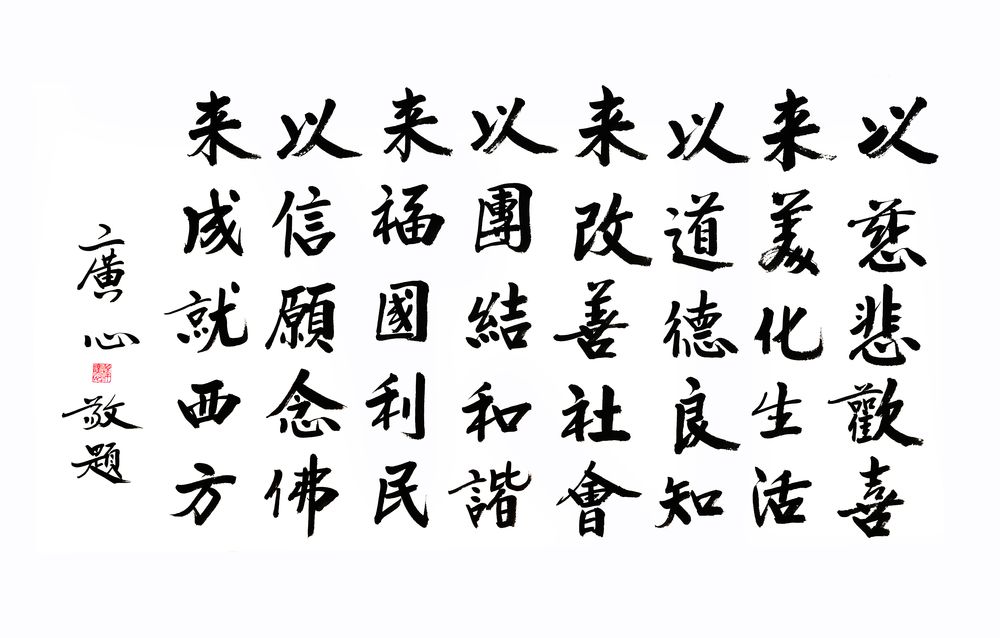 以慈悲歡喜
来美化生活
以道德良知
来改善社會
以團結和諧
来福國利民
以信願念佛
来成就西方
廣心敬題